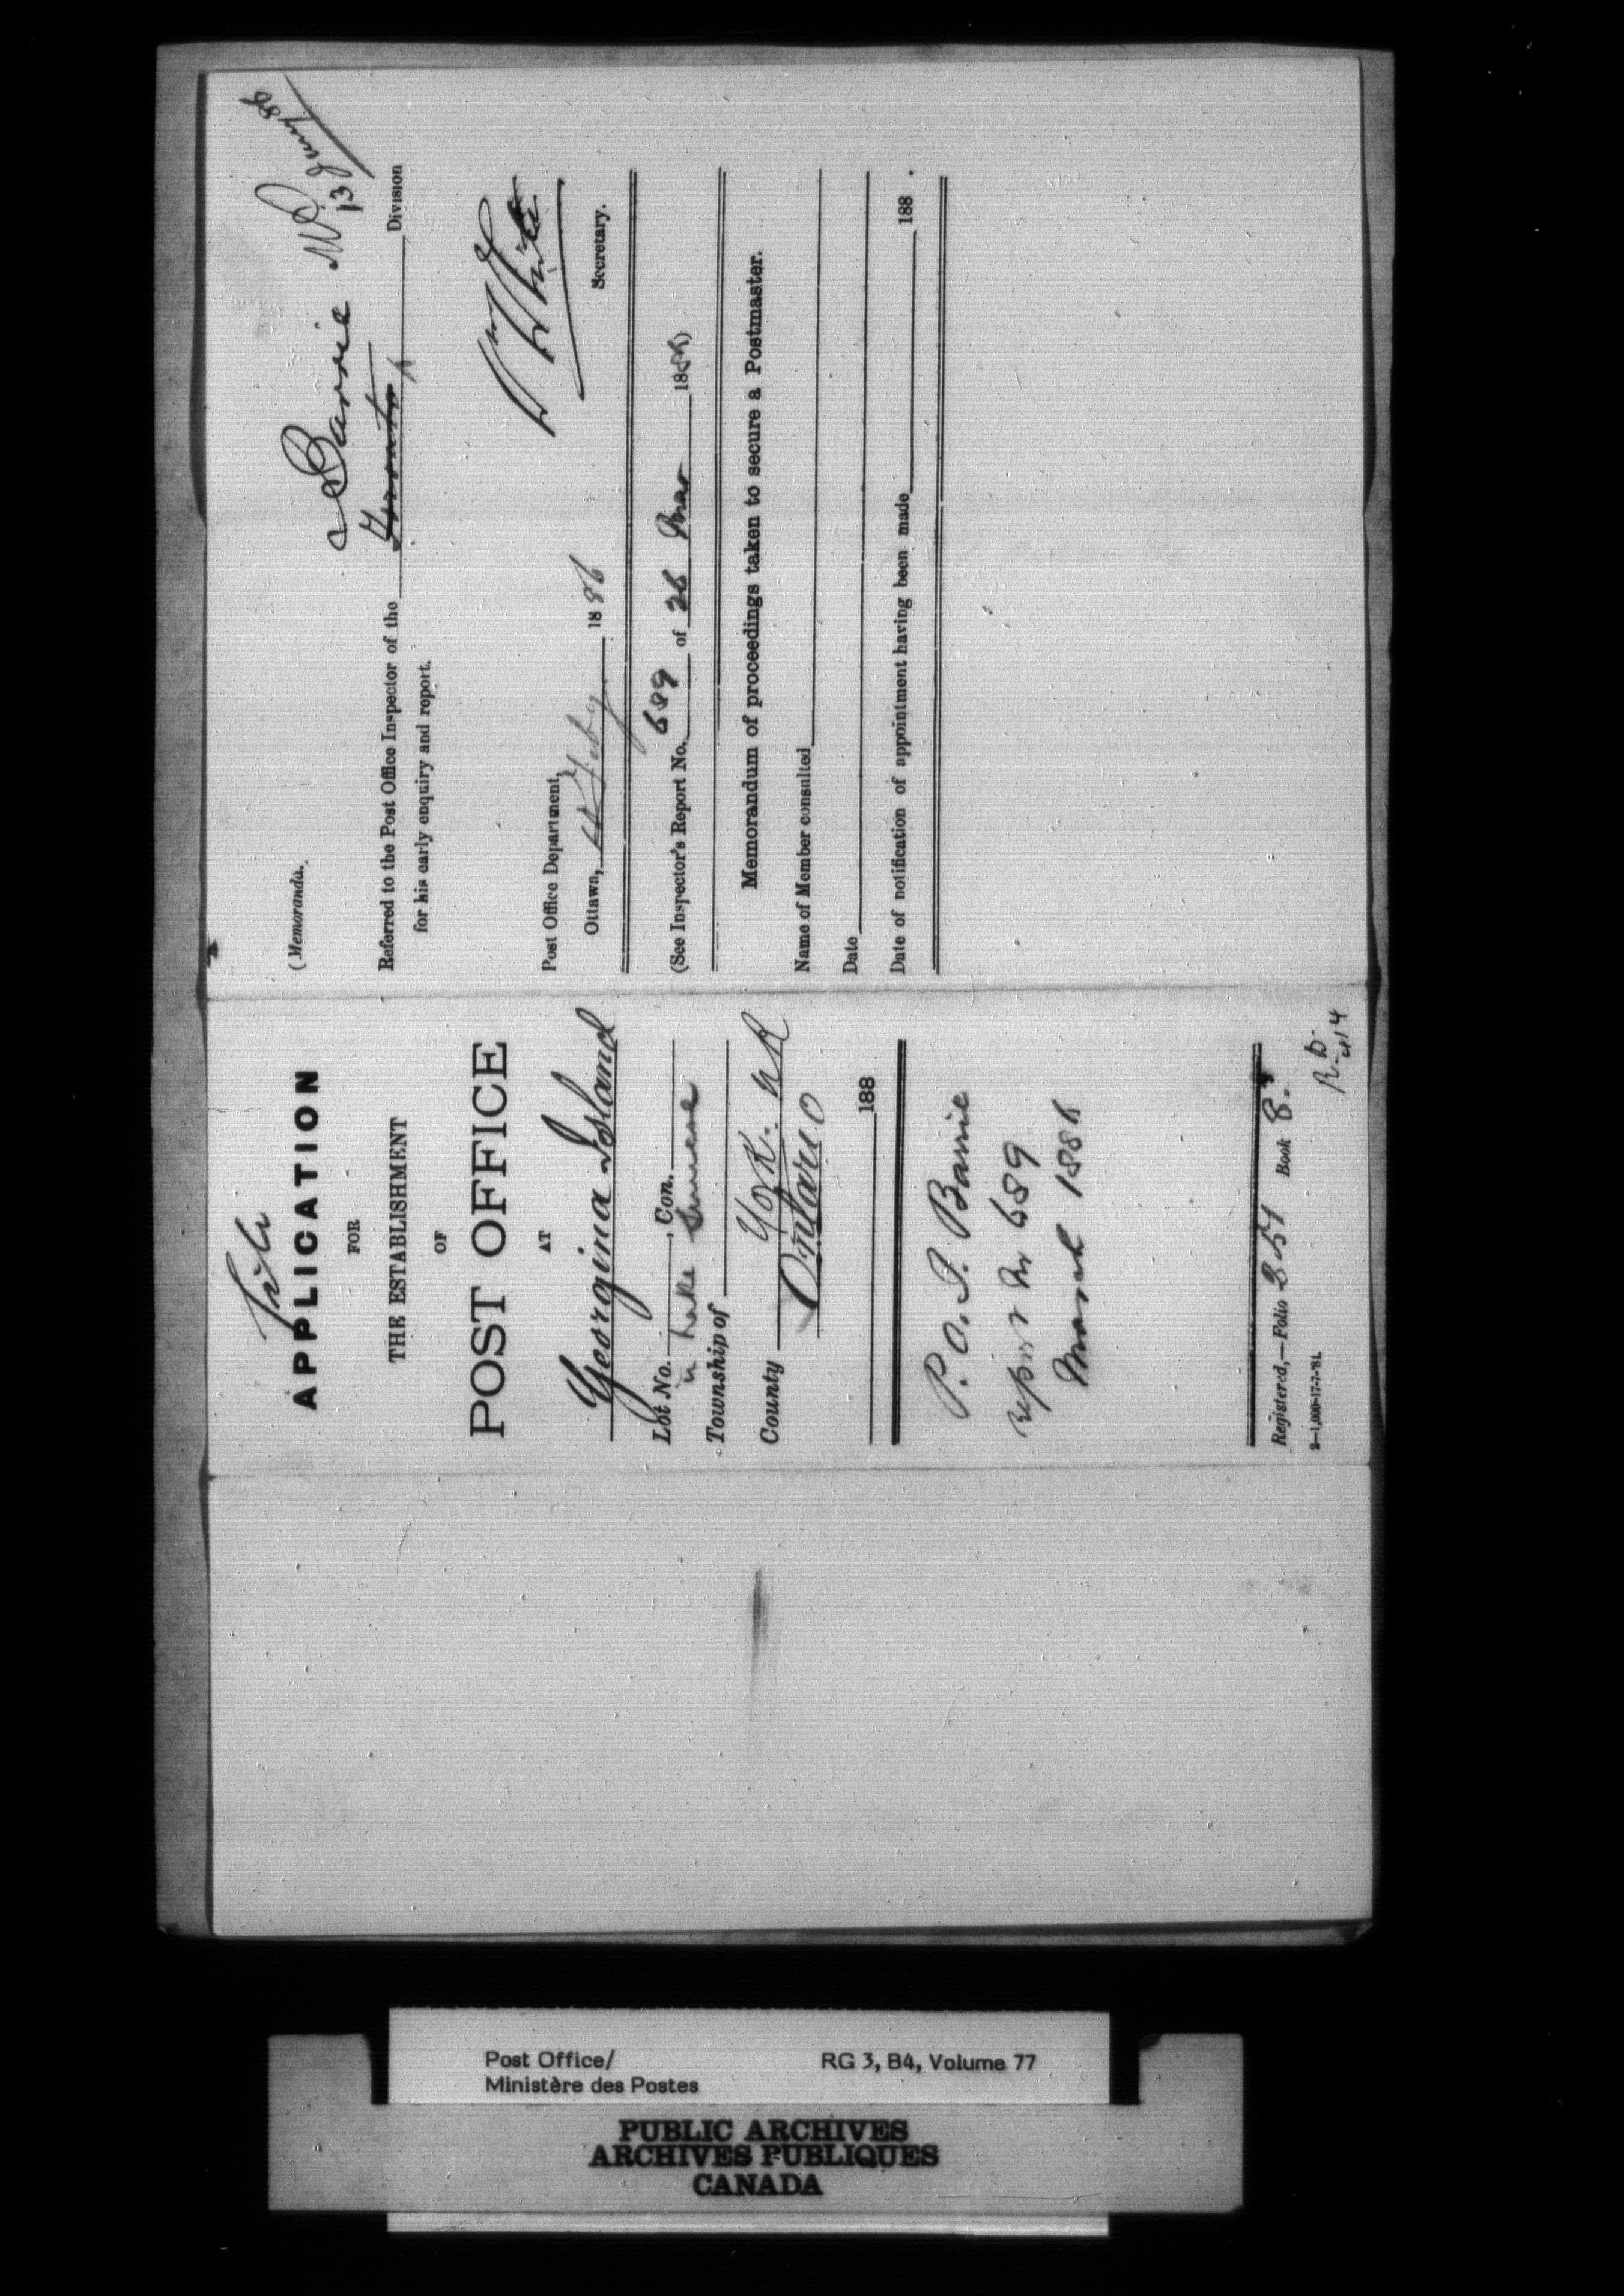 File
APPLICATION
FOR
THE ESTABLISHMENT
OF
POST OFFICE
AT
Georgina Island
Lot No. , Con.
in Lake Simcoe
Township of
County York. N R
Ontario
188
P. O. I. Barrie
report No 689
March 1886
Registered,—Folio 251 Book 8.
2—1,000-17-7-'84.
R. D.
414
(Memoranda.
Barrie
13 86
Referred to the Post Office Inspector of the Toronto Division
for his early enquiry and report.
Post Office Department,
Ottawa, Feby 1886
White
Secretary.
(See Inspector's Report No. 689 of 26 Mar 1886)
Memorandum of proceedings taken to secure a Postmaster.
Name of Member consulted
Date
Date of notification of appointment having been made 188 .
Post Office/
Ministère des Postes
RG 3, B4, Volume 77
PUBLIC ARCHIVES
ARCHIVES PUBLIQUES
CANADA